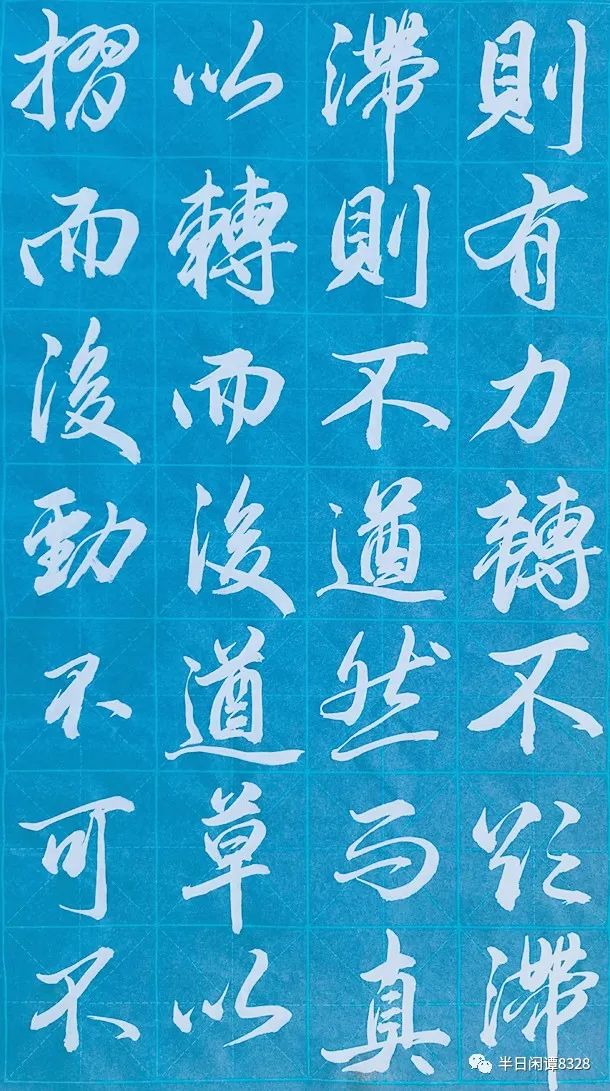 則有力轉不欲滯
滯則不遒然而真
以轉而後遒草以
摺而後勁不可不
半日闲谭8328